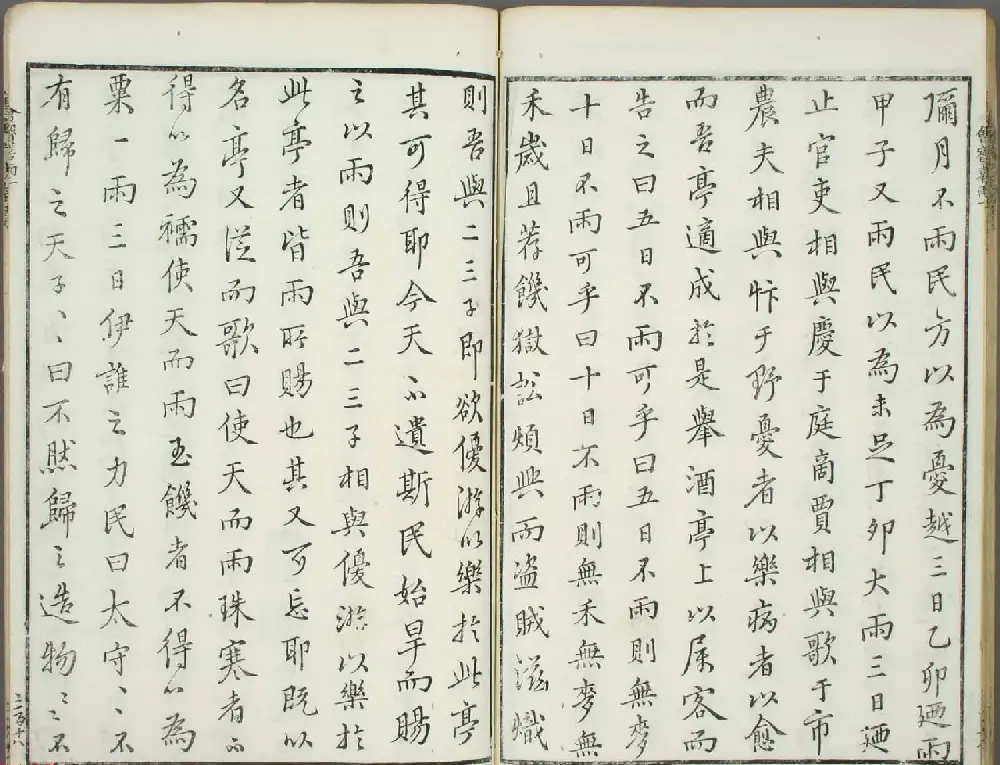 彌月不雨民方以為憂越三日乙卯廼雨
甲子又雨民以為未足丁卯大雨三日廼
止官吏相與慶于庭商賈相與歌于市
農夫相與忭于野憂者以樂病者以愈
而吾亭適成於是舉酒亭上以屬客而
告之曰五日不雨可乎曰五日不雨則無麥
十日不雨可乎曰十日不雨則無禾無麥無
禾歲且荐饑獄訟煩興而盗賊滋熾
則吾與二三子即欲優游以樂於此亭
其可得耶今天不遺斯民始旱而賜
之以雨則吾與二三子相與優游以樂於
此亭者皆雨所賜也其又可忘耶既以
名亭又從而歌曰使天而雨珠寒者不
得以為襦使天而雨玉饑者不得以為
粟一雨三日伊誰之力民曰太守〻不
有歸之天子〻曰不然歸之造物〻不